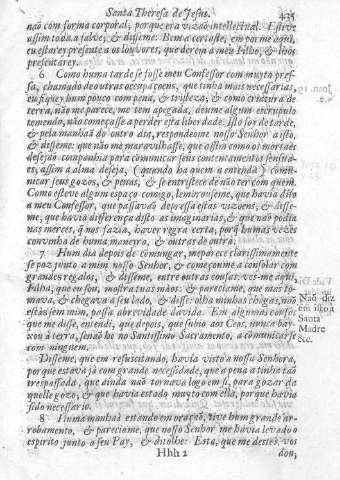 Santa Theresa de Jesus. 435
não com forma corporal, porque era vizão intellectual. Estive
assim toda a salve, & disseme: Bem acertaste, em por me aqui,
eu estarey presente a os louvores, que derem a meu Filho, & lhos
presentarey.
6 Como huma tarde se fosse meu Confessor com muyta pres-
sa, chamado de outras occupaçoens, que tinha mais necessarias,
eu fiquey hum pouco com pena, & tristeza, & como criatura de
terra, não me parece, me tem apegada, deume algum escrupulo
temendo, não começasse a perder esta liberdade. Isto foy de tarde,
& pela manhaã do outro dia, respondeome nosso Senhor a isto,
& disseme: que não me maravilhasse, que assim como os mortaes
desejão companhia para comunicar seus contentamentos sensua-
es, assim a alma deseja, (quando ha quem a entenda) comu-
nicar seus gozos, & penas, & se entristece de não ter com quem.
Como esteve algum espaço comigo, lembrouseme, que havia dito
a meu Confessor, que passavaõ depressa estas vizoens, & disse-
me, que havia differença disto as imaginarias, & que não podia
nas merces, q̃ nos fazia, haver regra certa, porq̃ humas vezes
convinha de huma maneyra, & outras de outra.
7 Hum dia depois de comungar, me parece clarissimamente
se poz junto a mim nosso Senhor, & começoume a consolar com
grandes regalos, & disseme, entre outras cousas. ves-me aqui,
Filha, que eu sou, mostra tuas mãos: & pareciame, que mas to-
mava, & chegava a seu lado, & disse: olha minhas chagas, não
estás sem mim, passa a brevidade da vida. Em algumas cousas,
que me disse, entendi, que depois, que subio aos Ceos, nunca bay-
xou à terra, senaõ he no Santissimo Sacramento, a comunicarse
com ninguem.
Não diz
em isto a
Santa
Madre
&c.
Disseme, que em resuscitando, havia visto a nossa Senhora,
porque estava já com grande necessidade, que a pena a tinha taõ
trespassada, que ainda não tornava logo em si, para gozar da
quelle gozo, & que havia estado muyto com ella, porque havia
sido necessario.
8 Huma manhaã estando em oração, tive hum grande ar-
robamento, & pareciame, que nosso Senhor me havia levado o
espirito junto a seu Pay, & ditolhe: Esta, que me destes, vos
Hhh 2 dou,